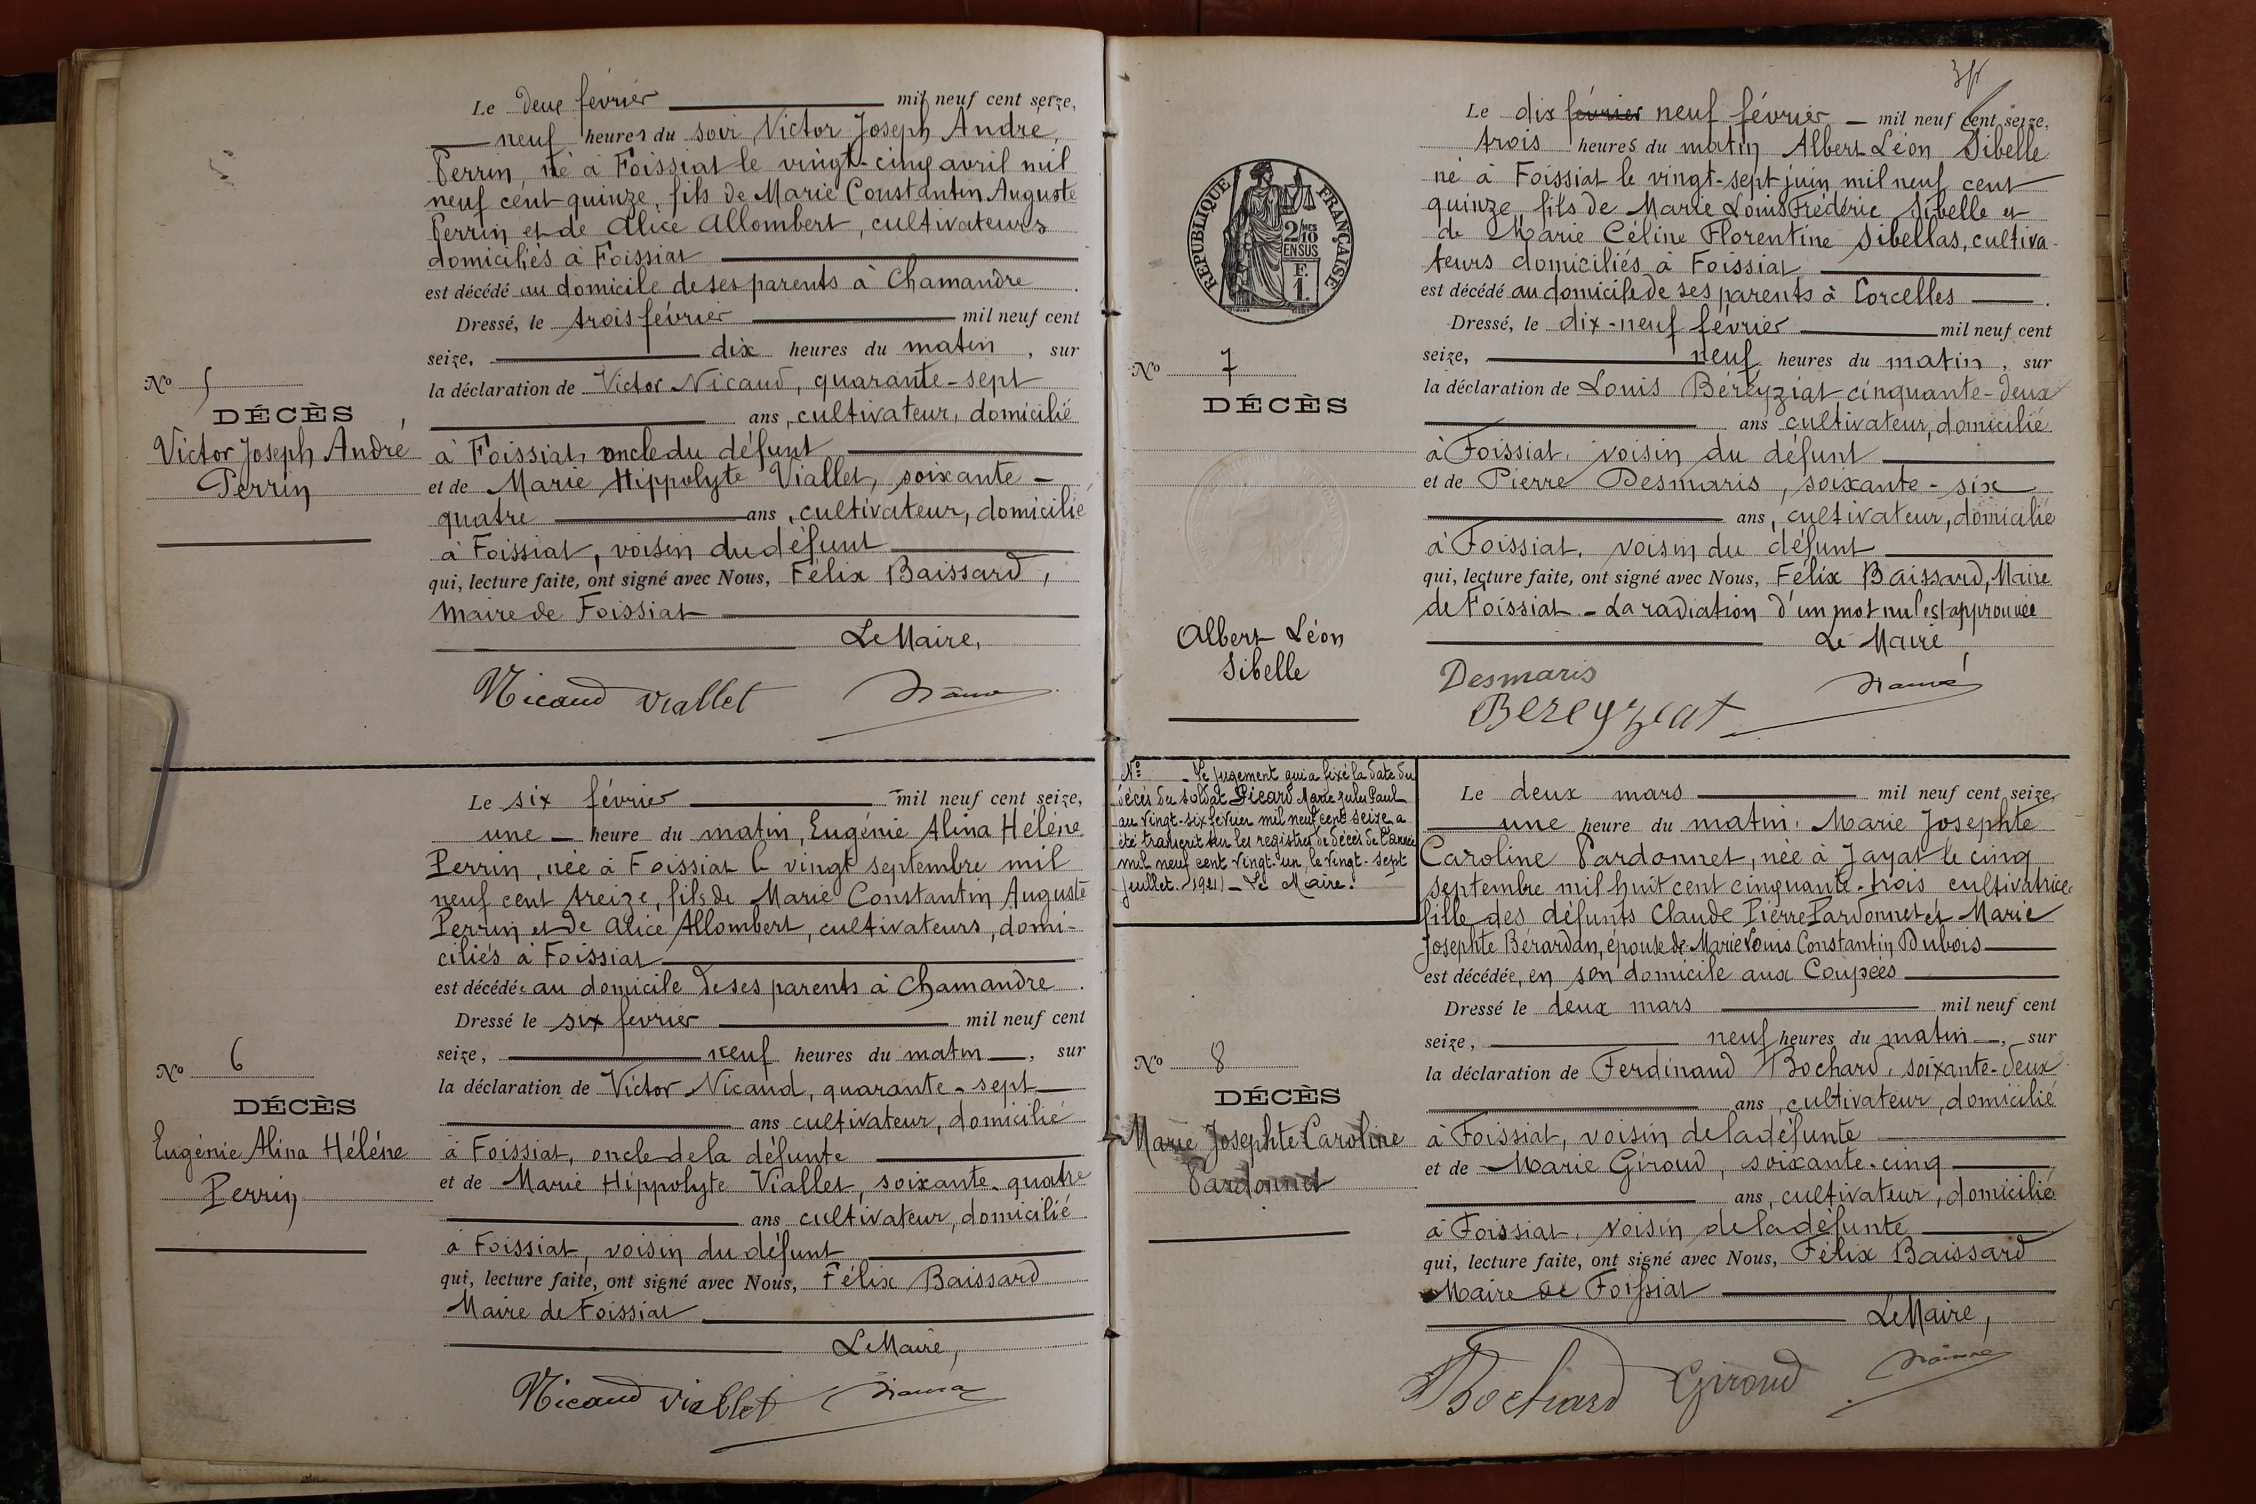 Le deux février mil neuf cent seize,
neuf heures du soir, Victor Joseph André
Perrin, né à Foissiat le vingt-cinq avril mil
neuf cent quinze, fils de Marie Constantin Auguste
Perrin et de Alice Allombert, cultivateurs
domiciliés à Foissiat
est décédé au domicile de ses parents à Chamandre.
Dressé, le trois février mil neuf cent
seize, dix heures du matin, sur
la déclaration de Victor Nicaud, quarante-sept
ans, cultivateur, domicilié
à Foissiat, oncle du défunt
et de Marie Hippolyte Viallet, soixante-
quatre ans, cultivateur, domicilié
à Foissiat, voisin du défunt
qui, lecture faite, ont signé avec Nous, Félix Baissard,
Maire de Foissiat
Le Maire,
Nicaud Viallet
No 5
DÉCÈS
Victor Joseph André
Perrin
Le six février mil neuf cent seize,
une heure du matin, Eugénie Alina Héléne
Perrin, née à Foissiat le vingt septembre mil
neuf cent treize, fils de Marie Constantin Auguste
Perrin et de Alice Allombert, cultivateurs, domi-
ciliés à Foissiat
est décédée au domicile de ses parents à Chamandre.
Dressé le six février mil neuf cent
seize, neuf heures du matin, sur
la déclaration de Victor Nicaud, quarante-sept
ans cultivateur, domicilié
à Foissiat, oncle de la défunte
et de Marie Hippolyte Viallet, soixante-quatre
ans cultivateur, domicilié
à Foissiat, voisin du défunt
qui, lecture faite, ont signé avec Nous, Félix Baissard
Maire de Foissiat
Le Maire,
Nicaud Viallet
No 6
DÉCÈS
Eugénie Alina Héléne
Perrin
Le dix février neuf février mil neuf cent seize,
trois heures du matin Albert Léon Sibelle
né à Foissiat le vingt-sept juin mil neuf cent
quinze, fils de Marie Louis Frédéric Sibelle et
de Marie Céline Florentine Sibellas, cultiva-
teurs domiciliés à Foissiat
est décédé au domicile de ses parents à Corcelles.
Dressé, le dix-neuf février mil neuf cent
seize, neuf heures du matin, sur
la déclaration de Louis Béréyziat cinquante-deux
ans cultivateur, domicilié
à Foissiat, voisin du défunt
et de Pierre Desmaris, soixante-six
ans, cultivateur, domicilié
à Foissiat, voisin du défunt
qui, lecture faite, ont signé avec Nous, Félix Baissard, Maire
de Foissiat - La radiation d'un mot nul est approuvée
Le Maire,
Desmaris
Bereyziat
RÉPUBLIQUE FRANÇAISE
2/10
EN SUS
F.
1.
No 7
DÉCÈS
Albert Léon
Sibelle
No - Le jugement qui a fixé la date du
décès du soldat Picard Marie Jules Paul
au vingt-six février mil neuf cent seize a
été transcrit sur les registres de décès de l'année
mil neuf cent vingt-un, le vingt-sept
juillet 1921 - Le Maire.
Le deux mars mil neuf cent seize,
une heure du matin, Marie Josephte
Caroline Pardonnet, née à Jayat le cinq
septembre mil huit cent cinquante-trois cultivatrice
fille des défunts Claude Pierre Pardonnet et Marie
Josephte Bérardan, épouse de Marie Louis Constantin Dubois
est décédée, en son domicile aux Coupées
Dressé le deux mars mil neuf cent
seize, neuf heures du matin, sur
la déclaration de Ferdinand Bochard, soixante-deux
ans, cultivateur, domicilié
à Foissiat, voisin de la défunte
et de Marie Giroud, soixante-cinq
ans, cultivateur, domicilié
à Foissiat, voisin de la défunte
qui, lecture faite, ont signé avec Nous, Félix Baissard
Maire de Foissiat
Le Maire,
Bochard Giroud
No 8
DÉCÈS
Marie Josephte Caroline
Pardonnet